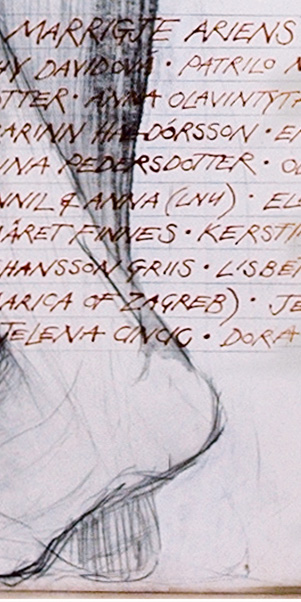 MARRIGJE ARIENS
HY DAVIDOVÁ · PATRILO
OTTER · ANNA OLAVINTYT
ARINN HALLDÓRSSON ·
NNA PEDERSDOTTER ·
NNIL & ANNA (LNU) · EL
MÅRET FINNES · KERSTI
HANSSON GRIIS · LISBE
MARICA OF ZAGREB) · JE
JELENA CINCIC · DORA